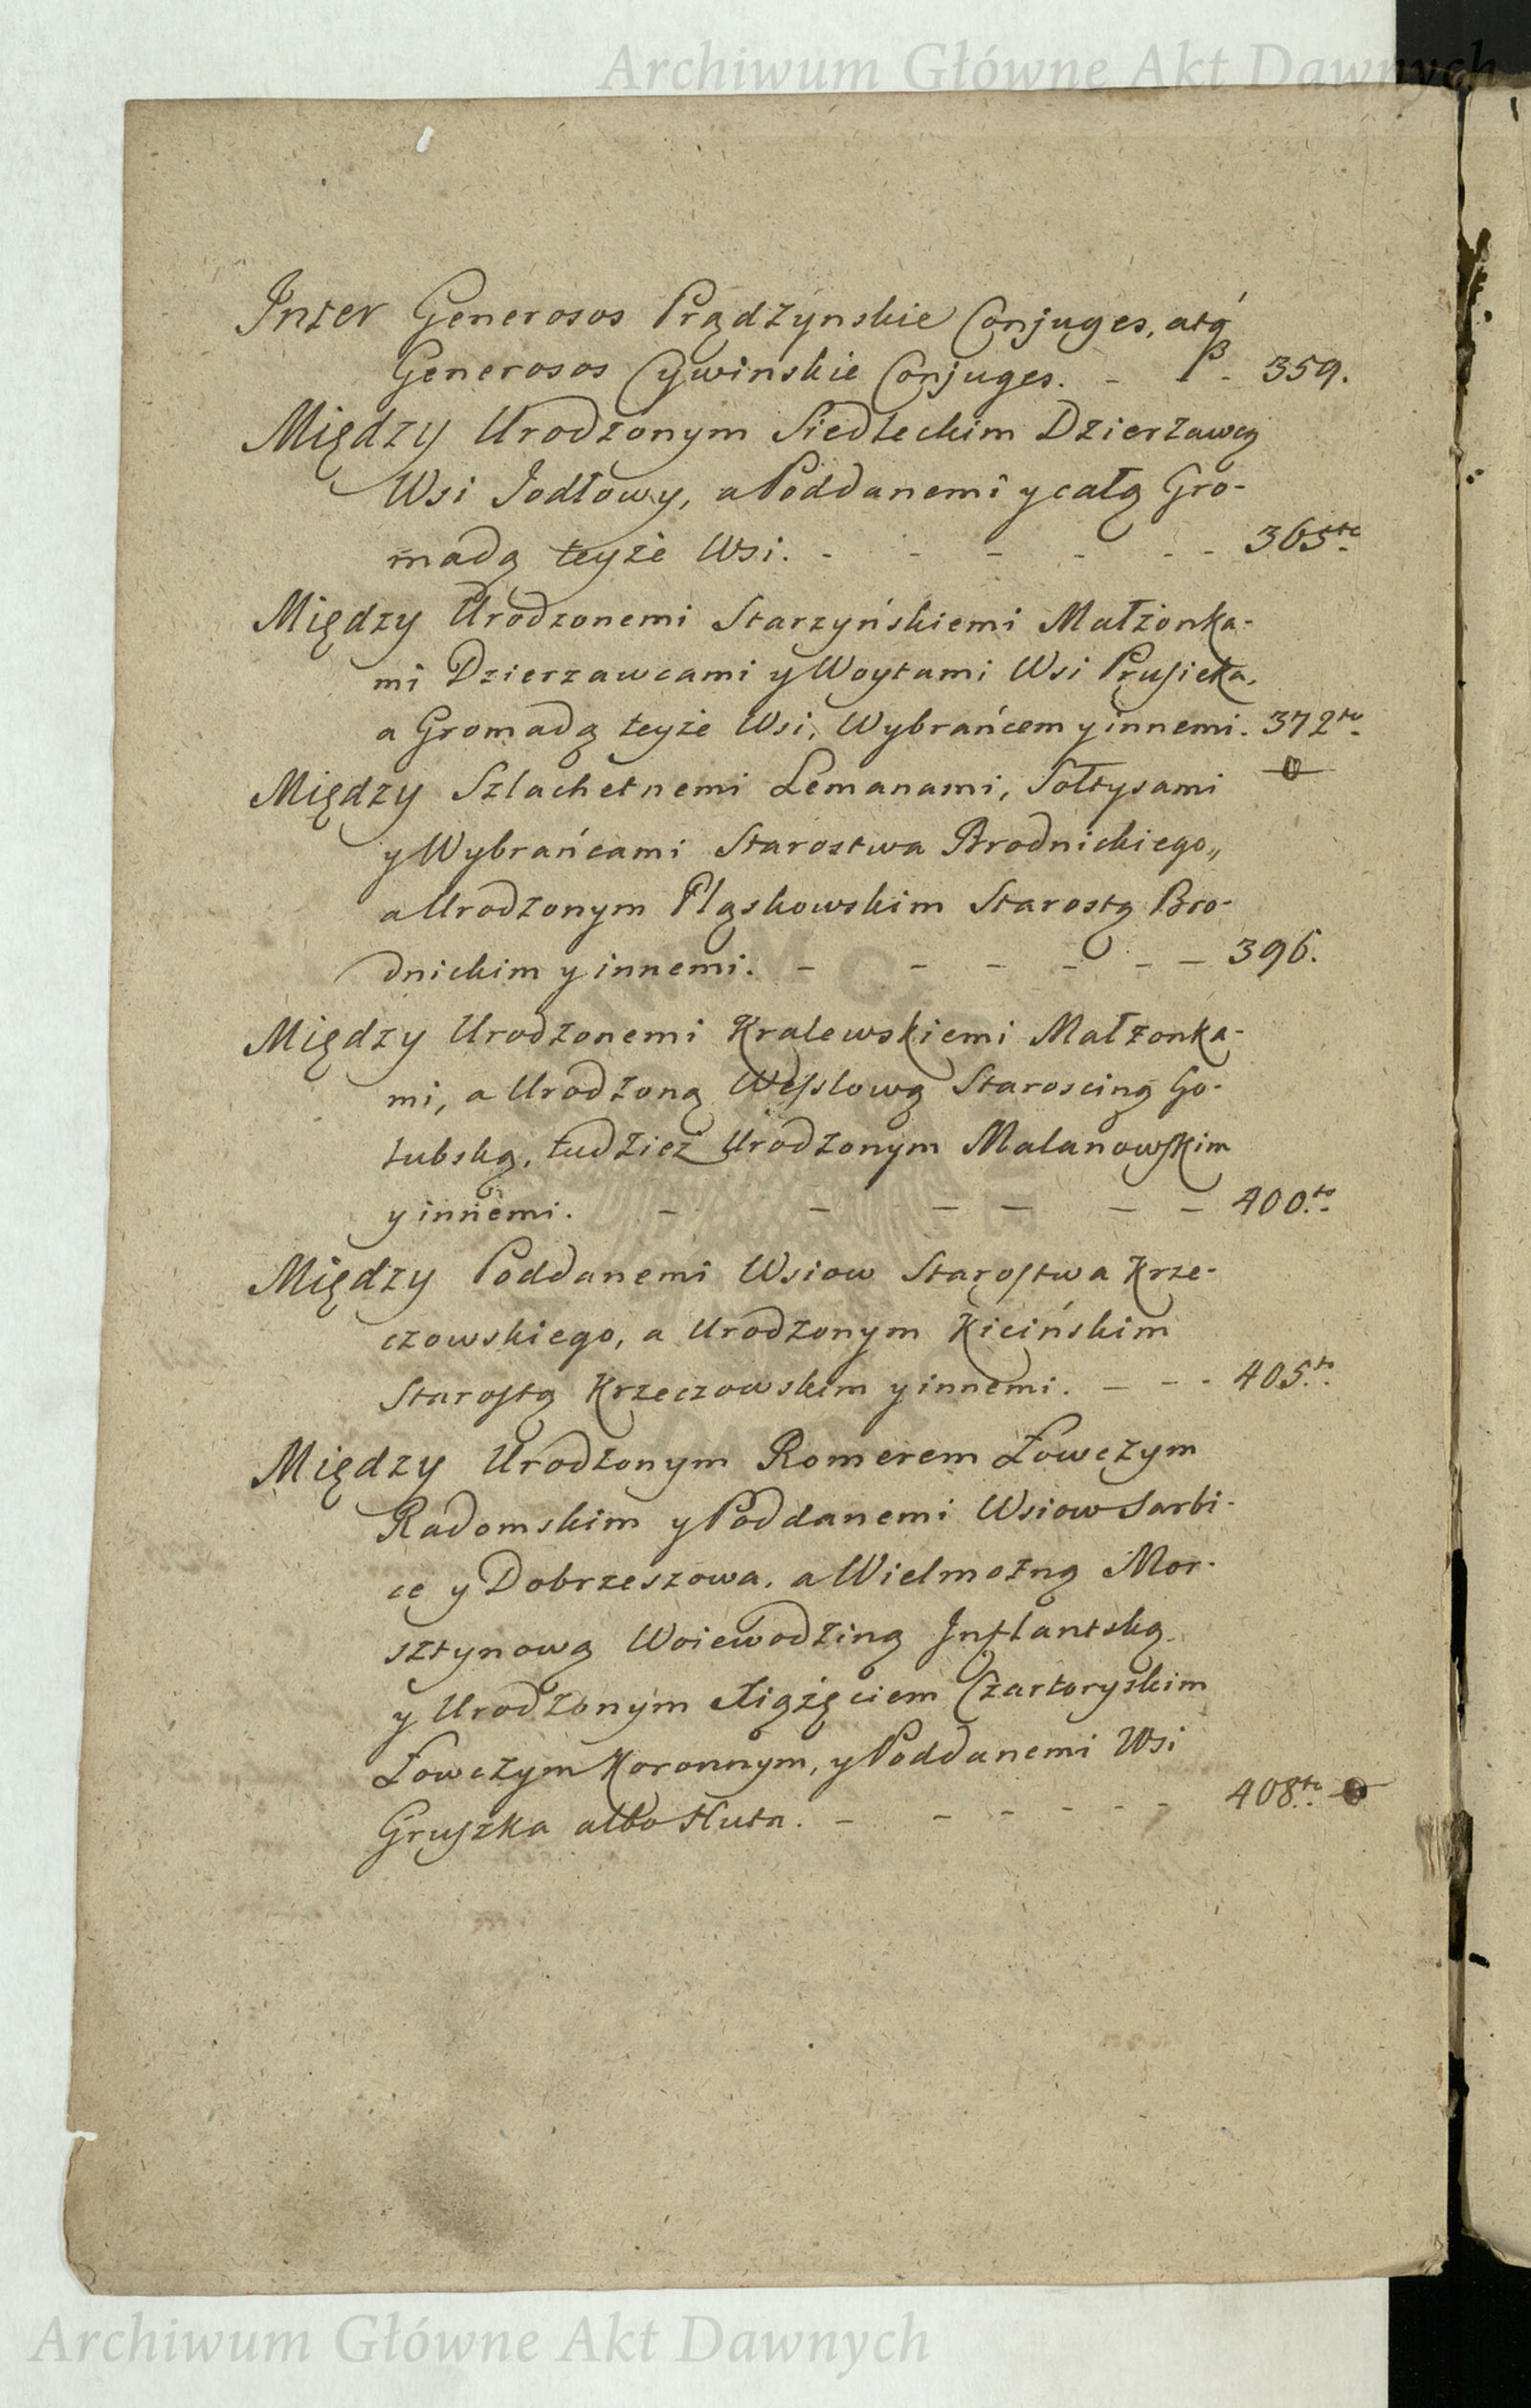 Archiwum Główne Akt Dawnych
Inter Generosos Prądzynskie Conjuges, atq́
Generosos Cywinskie Conjuges. - P. - 359.
Między Urodzonym Siedleckim Dzierzawcą
Wsi Jodłowy, a Poddanemi y całą Gro-
madą teyże Wsi. - - - - - - 365to.
Między Urodzonemi Starzyńskiemi Małżonka-
mi Dzierzawcami y Woytami Wsi Prusieka,
a Gromadą teyże Wsi, Wybrańcem y innemi. 372to.
Między Szlachetnemi Lemanami, Sołtysami
y Wybrańcami Starostwa Brodnickiego,,
a Urodzonym Pląskowskim Starostą Bro-
dnickim y innemi. - - - - - - 396.
Między Urodzonemi Kralewskiemi Małzonka-
mi, a Urodzoną Wesslową Starosciną Go-
łubską, tudzież Urodzonym Malanowskim
y innemi. - - - - - - 400to.
Między Poddanemi Wsiow Starostwa Krze-
czowskiego, a Urodzonym Kicińskim
Starostą Krzeczowskim y innemi. - - - 405to.
Między Urodzonym Romerem Łowczym
Radomskim y Poddanemi Wsiow Sarbi-
ce y Dobrzeszowa, a Wielmożną Mor-
sztynową Woiewodziną Inflantską
y Urodzonym Xiążęciem Czartoryskim
Łowczym Koronnym, y Poddanemi Wsi
Gruszka albo Huta. - - - - - - 408to.
Archiwum Główne Akt Dawnych